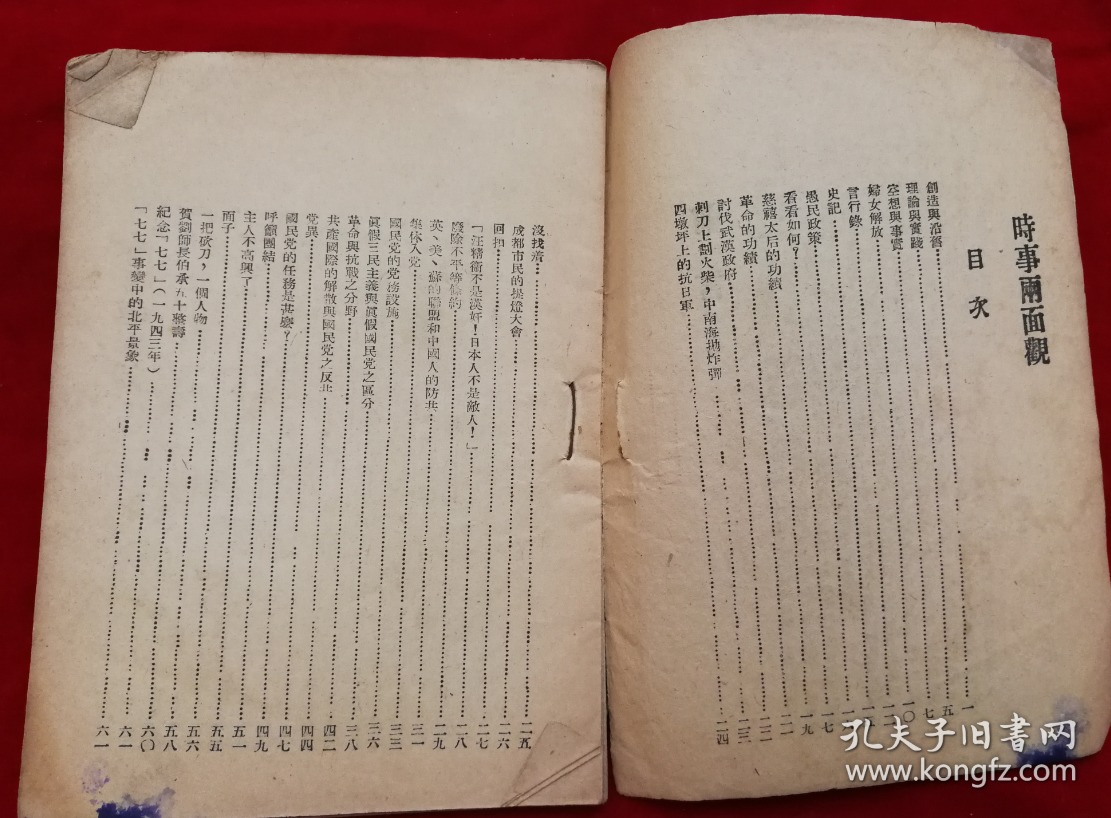 時事兩面觀
目次
創造與沿舊……一
理論與實踐……五
空想與事實……七
婦女解放……一〇
言行錄
史記
愚民政策……一七
看看如何?……一九
慈禧太后的功績……二二
革命的功績……二三
討伐武漢政府
刺刀上劃火柴,中南海拋炸彈
四墩坪上的抗日軍……二四
沒找着……二五
成都市民的提燈大會……二六
回扣……二七
「汪精衛不是漢奸!日本人不是敵人!」
廢除不平等條約……二八
英、美、蘇的聯盟和中國人的防共……二九
集体入党……三一
國民党的党務設施……三三
眞假三民主義與眞假國民党之區分……三六
革命與抗戰之分野……三八
共產國際的解散與國民党之反共……四二
党異……四四
國民党的任務是甚麽?……四七
呼籲團結……四九
主人不高興了……五一
面子……五五
一把砍刀,一個人物……五六
賀劉師長伯承五十整壽……五八
紀念「七七」(一九四三年)……六〇
「七七」事變中的北平景象……六一
孔夫子旧書网
www.kongfz.com